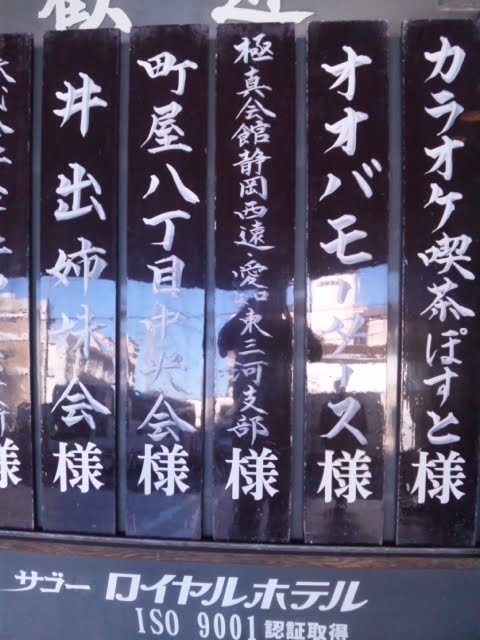 歓迎
カラオケ喫茶ぽすと様
オオバモータース様
極真会館静岡西遠・愛知東三河支部様
町屋八丁目中央会様
井出姉妹会様
様
サゴー ロイヤルホテル
ISO 9001 認証取得